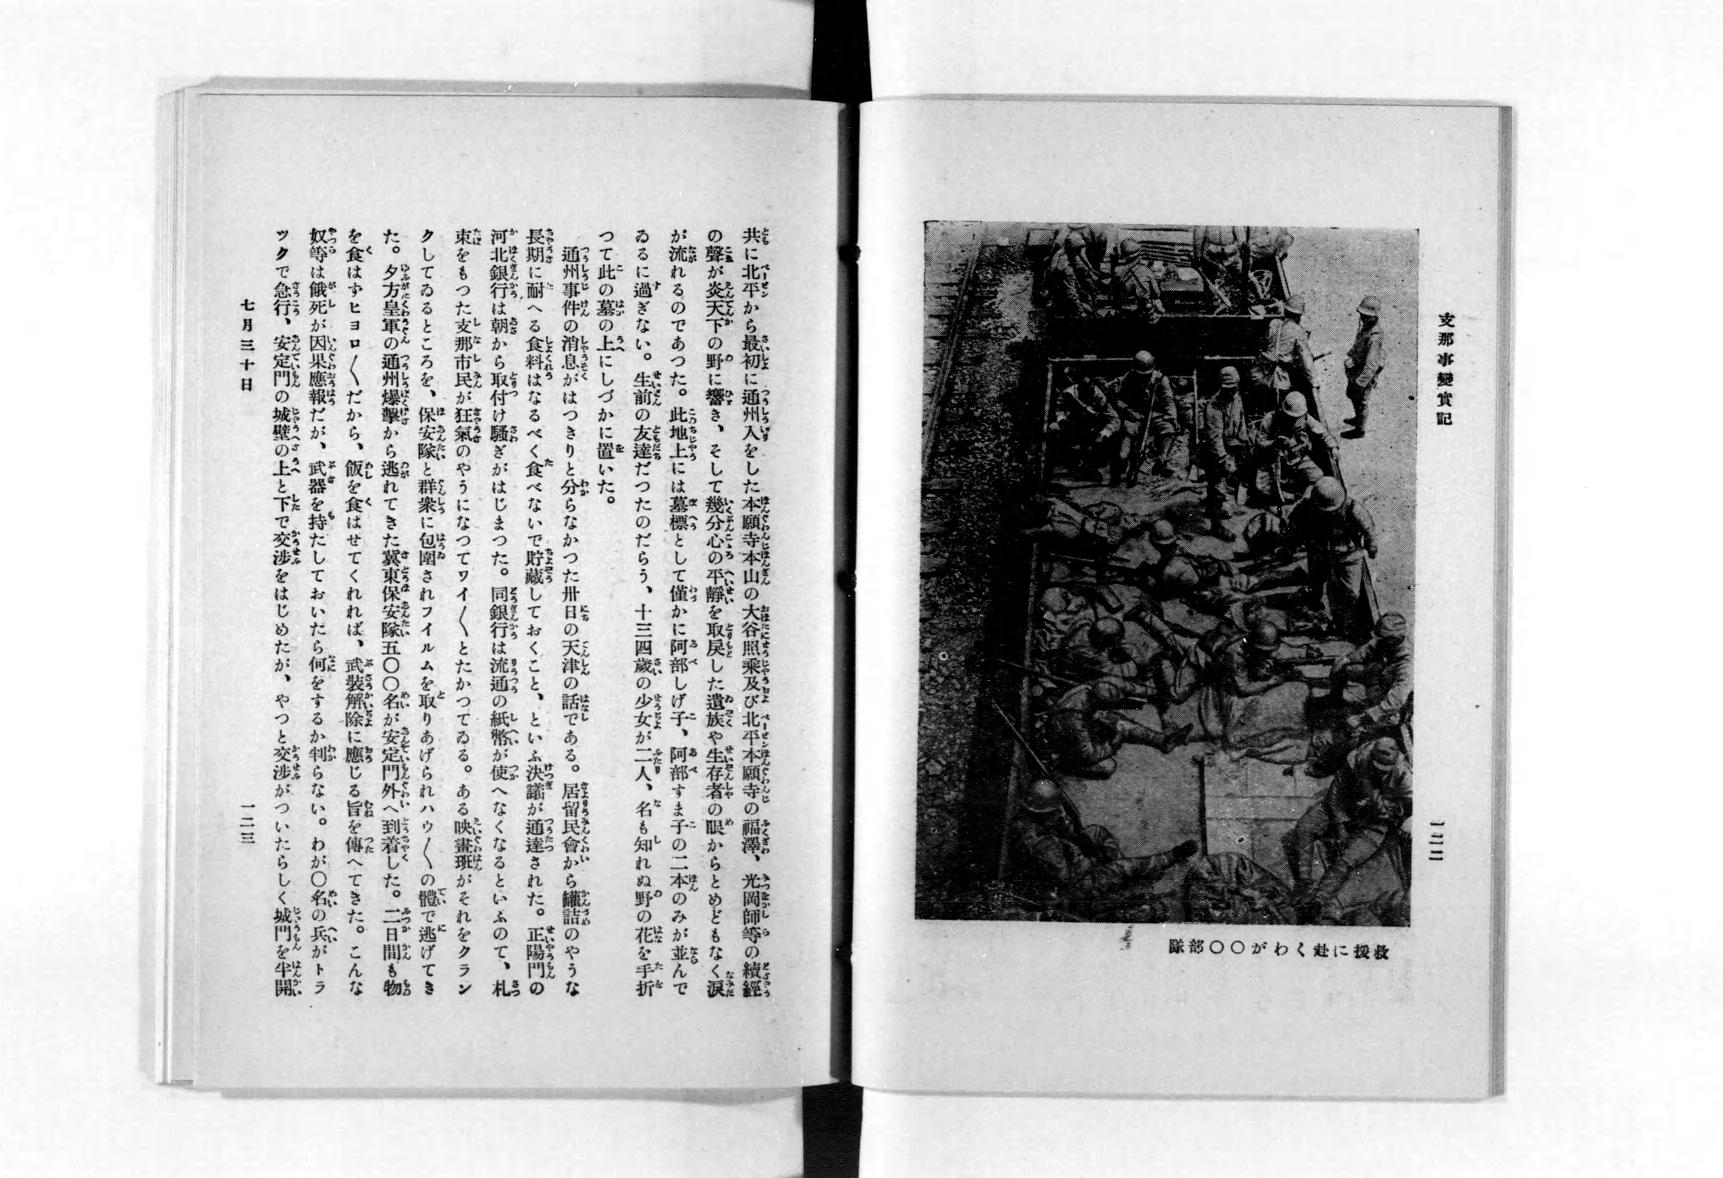 支那事變實記
一二二
救援に赴くわが〇〇部隊
共に北平から最初に通州入をした本願寺本山の大谷照乘及び北平本願寺の福澤、光岡師等の續經
の聲が炎天下の野に響き、そして幾分心の平靜を取戻した遺族や生存者の眼からとめどもなく淚
が流れるのであつた。此地上には墓標として僅かに阿部しげ子、阿部すま子の二本のみが並んで
ゐるに過ぎない。生前の友達だつたのだらう、十三四歲の少女が二人、名も知れぬ野の花を手折
つて此の墓の上にしづかに置いた。
通州事件の消息がはつきりと分らなかつた卅日の天津の話である。居留民會から罐詰のやうな
長期に耐へる食料はなるべく食べないで貯藏しておくこと、といふ決議が通達された。正陽門の
河北銀行は朝から取付け騷ぎがはじまつた。同銀行は流通の紙幣が使へなくなるといふので、札
束をもつた支那市民が狂氣のやうになつてワイ〱とたかつてゐる。ある映畫班がそれをクラン
クしてゐるところを、保安隊と群衆に包圍されフイルムを取りあげられハウ〱の體で逃げてき
た。夕方皇軍の通州爆擊から逃れてきた冀東保安隊五〇〇名が安定門外へ到着した。二日間も物
を食はずヒヨロ〱だから、飯を食はせてくれれば、武裝解除に應じる旨を傳へてきた。こんな
奴等は餓死が因果應報だが、武器を持たしておいたら何をするか判らない。わが〇名の兵がトラ
ツクで急行、安定門の城壁の上と下で交涉をはじめたが、やつと交涉がついたらしく城門を半開
七月三十日
一二三